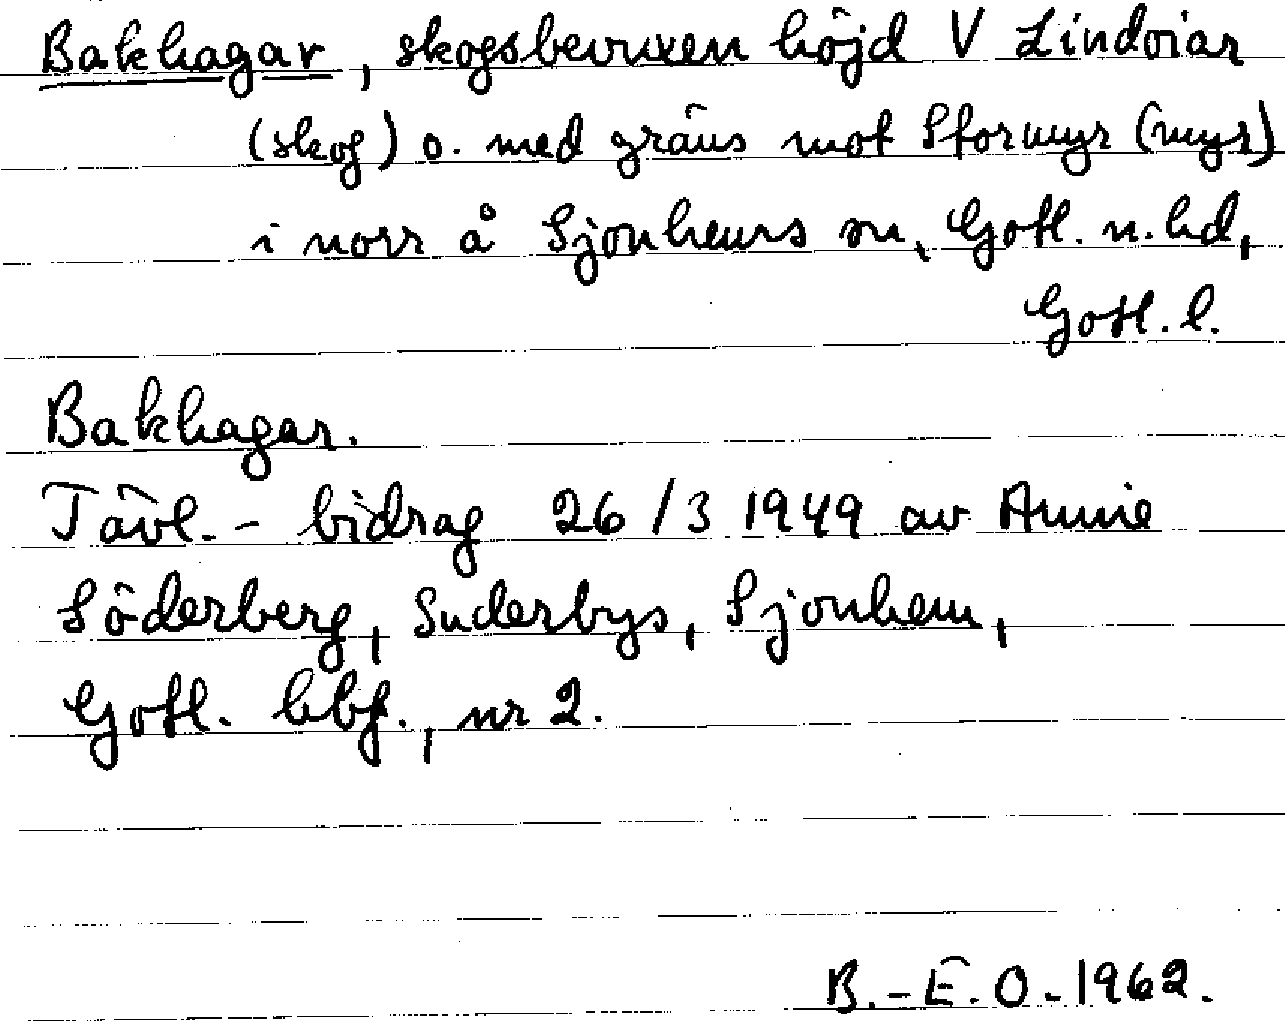 Bakhagar, skogsbevuxen höjd V Lindoiar
(skog) o. med gräns mot Stormyr (myr)
i norr å Sjonhems sn, Gotl. n. hd,
Gotl. l.
Bakhagar.
Tävl. - bidrag 26/3 1949 av Annie
Söderberg, Suderbys, Sjonhem,
Gotl. hbf., nr 2.
B.-E.O. 1962.